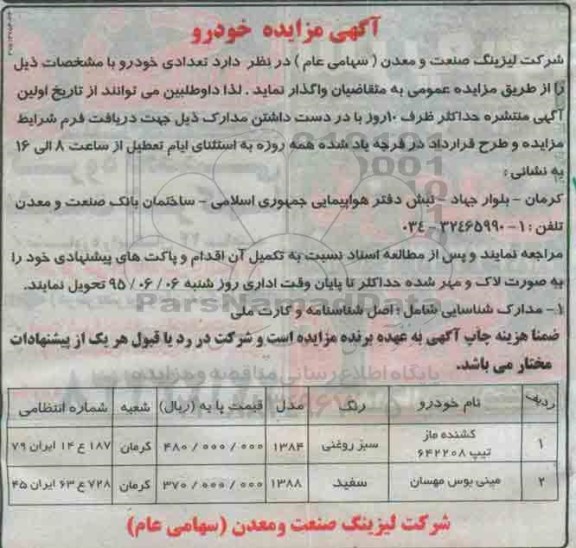 آگهی مزایده خودرو
شرکت لیزینگ صنعت و معدن ( سهامی عام ) در نظر دارد تعدادی خودرو با مشخصات ذیل
را از طریق مزایده عمومی به متقاضیان واگذار نماید . لذا داوطلبین می توانند از تاریخ اولین
آگهی منتشره حداکثر ظرف ۱۰روز با در دست داشتن مدارک ذیل جهت دریافت فرم شرایط
مزایده و طرح قرارداد در فرجه یاد شده همه روزه به استثنای ایام تعطیل از ساعت ۸ الی ۱۶
به نشانی :
کرمان - بلوار جهاد - نبش دفتر هواپیمایی جمهوری اسلامی - ساختمان بانک صنعت و معدن
تلفن : ۱ - ۳۲۴۶۵۹۹۰ - ۰۳۴
مراجعه نمایند و پس از مطالعه اسناد نسبت به تکمیل آن اقدام و پاکت های پیشنهادی خود را
به صورت لاک و مهر شده حداکثر تا پایان وقت اداری روز شنبه ۰۶ / ۰۶ / ۹۵ تحویل نمایند.
ParsNamadData
۱- مدارک شناسایی شامل : اصل شناسنامه و کارت ملی
ضمنا هزینه چاپ آگهی به عهده برنده مزایده است و شرکت در رد یا قبول هر یک از پیشنهادات
مختار می باشد.
پایگاه اطلاع رسانی مناقصه و مزایده
ردیف نام خودرو رنگ مدل قیمت پایه (ریال) شعبه شماره انتظامی
۱ کشنده ماز تیپ ۶۴۲۲۰۸ سبز روغنی ۱۳۸۴ ۴۸۰/۰۰۰/۰۰۰ کرمان ۱۸۷ ع ۱۴ ایران ۷۹
۲ مینی بوس مهسان سفید ۱۳۸۸ ۳۷۰/۰۰۰/۰۰۰ کرمان ۷۲۸ ع ۶۳ ایران ۴۵
شرکت لیزینگ صنعت ومعدن (سهامی عام)